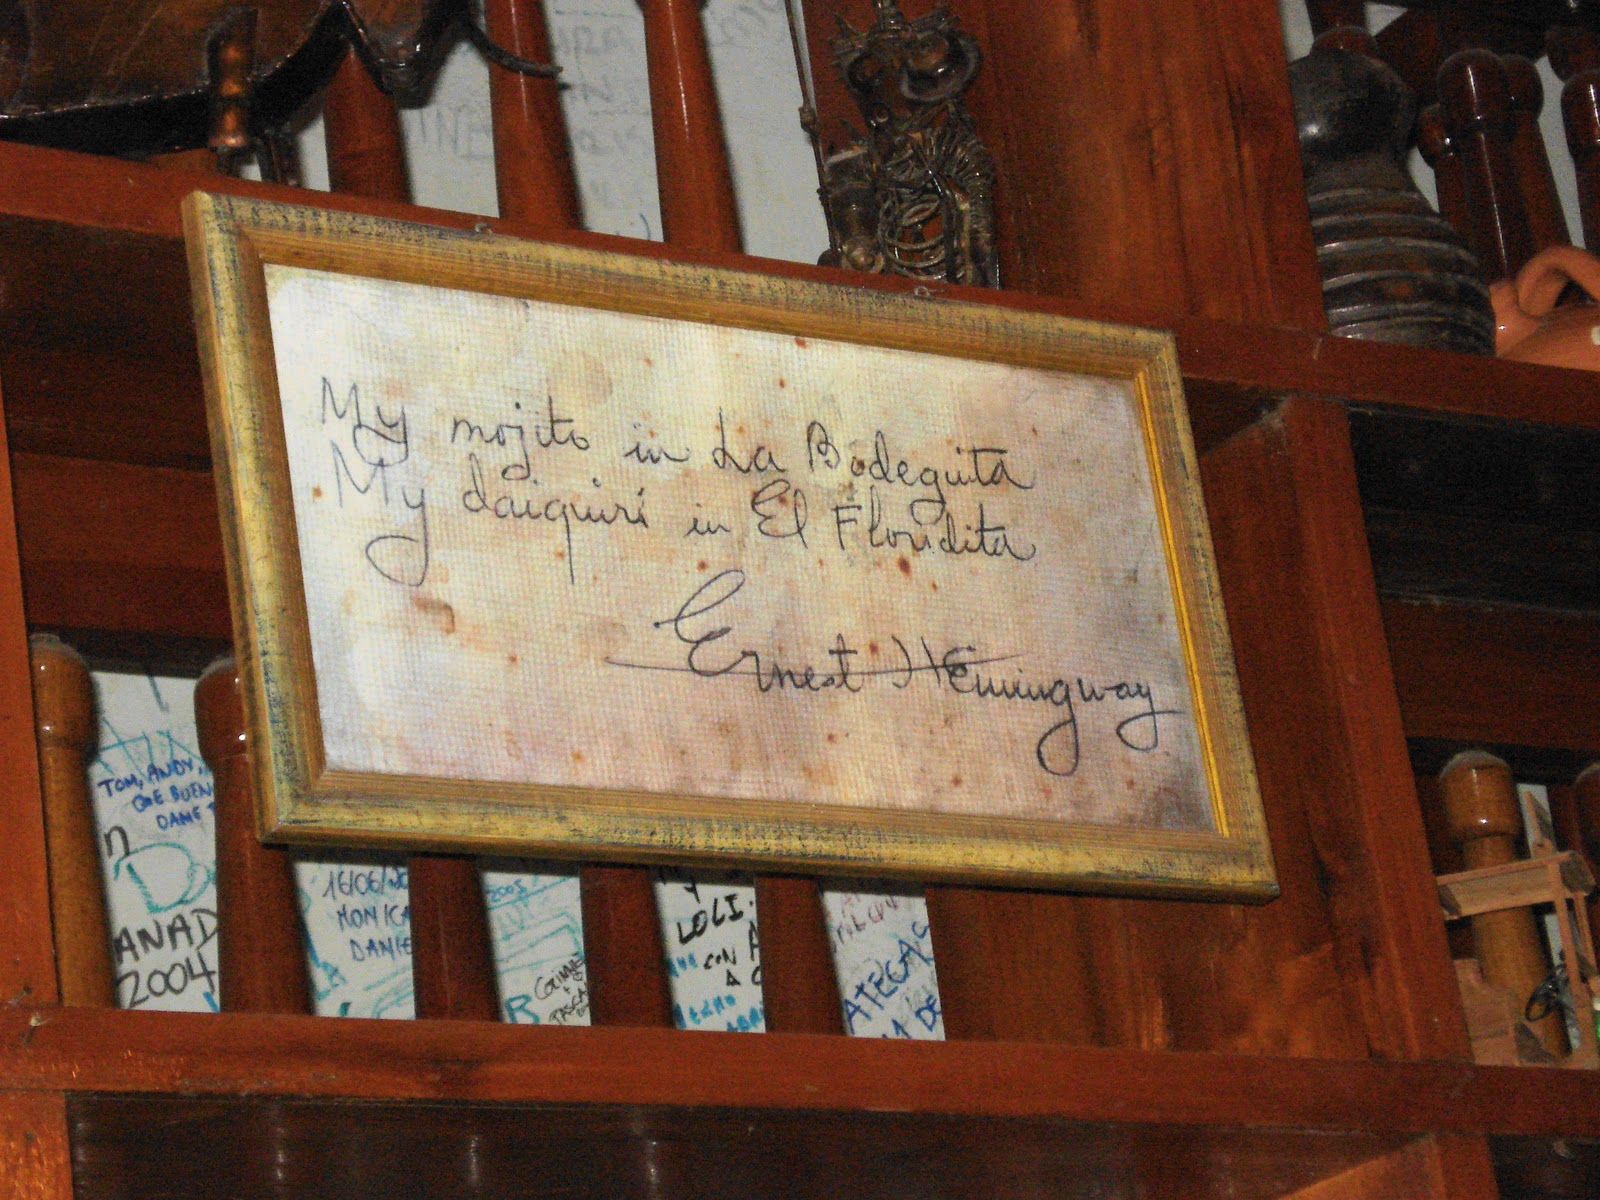 My mojito in La Bodeguita
My daiquirí in El Floridita
Ernest Hemingway
TOM, ANDY,
DAME
ANAD
2004
16/06/
MONICA
DANIE
2005
LOLI.
CON A